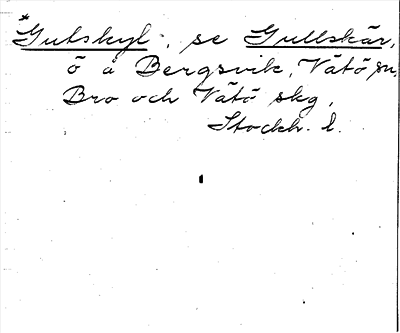 *Gutskyl-, se Gullskär,
ö å Bergsvik, Vätö sn,
Bro och Vätö skg,
Stockh. l.